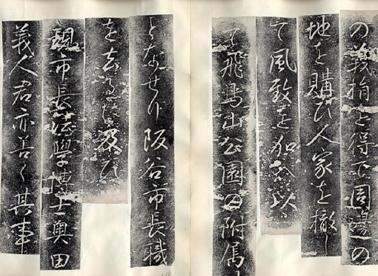 の義捐を得て周邊の
地を購ひ人家を撤し
て風致を加へ以
て飛鳥山公園の附属
となせり阪谷市長職
を去るに及び
現市長法學博士奥田
義人君亦善く其事